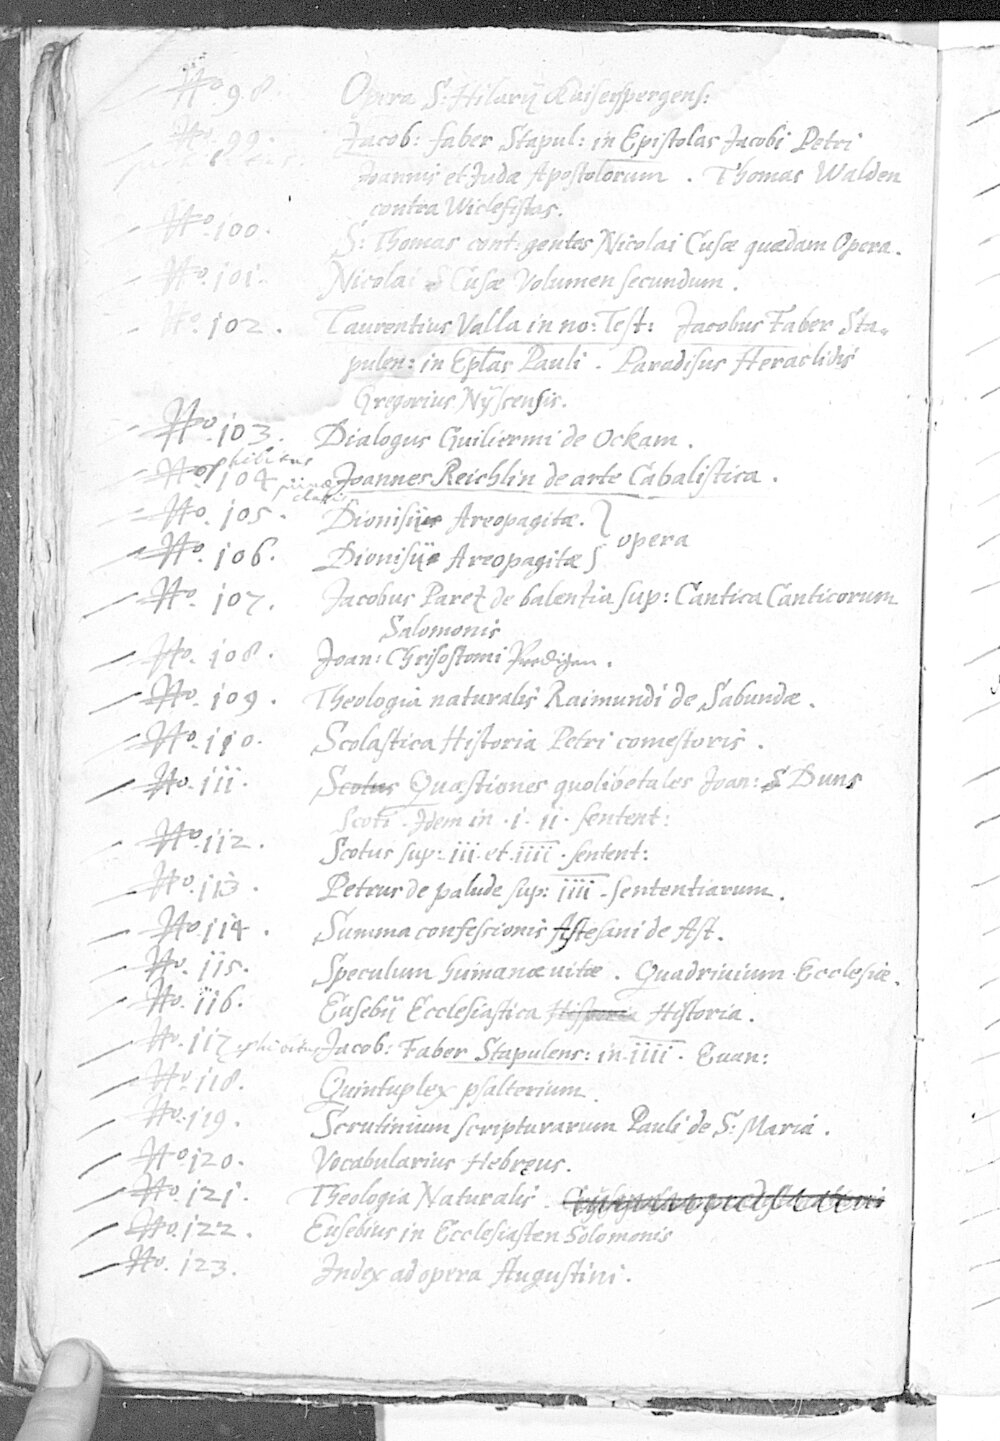 No. 98. Opera S: Hilarij Kaiserspergens:
No. 99. Jacob: Faber Stapul: in Epistolas Jacobi Petri
Joannis et Judæ Apostolorum. Thomas Walden
contra Wiclefistas.
No. 100. S: Thomas cont: gentes Nicolai Cusæ quædam Opera.
No. 101. Nicolai Cusæ Volumen secundum.
No. 102. Laurentius Valla in no: Test: Jacobus Faber Sta-
pulen: in Eptas Pauli. Paradisus Heraclidis
Gregorius Nyscensis.
No. 103. Dialogus Guiliermi de Ockam.
No. 104 Joannes Reichlin de arte Cabalistica.
No. 105. Dionisij Areopagitæ. } opera
No. 106. Dionisij Areopagitæ
No. 107. Jacobus Parez de balentia sup: Cantica Canticorum
Salomonis
No. 108. Joan: Chrisostomi Predigen.
No. 109. Theologia naturalis Raimundi de Sabundæ.
No. 110. Scolastica Historia Petri comestoris.
No. 111. Scotus Quæstiones quolibetales Joan: Duns
Scoti. Idem in .i. ii. sentent:
No. 112. Scotus sup: iii. et. iiii. sentent:
No. 113. Petrus de palude sup: iiii. sententiarum.
No. 114. Summa confescionis Astesani de Ast.
No. 115. Speculum humanæ vitæ. Quadrivium Ecclesiæ.
No. 116. Eusebij Ecclesiastica Historia.
No. 117 Jacob: Faber Stapulens: in. iiii. Euan:
No. 118. Quintuplex psalterium.
No. 119. Scrutinium scripturarum Pauli de S: Maria.
No. 120. Vocabularius Hebręus.
No. 121. Theologia Naturalis.
No. 122. Eusebius in Ecclesiasten Solomonis
No. 123. Index ad opera Augustini.